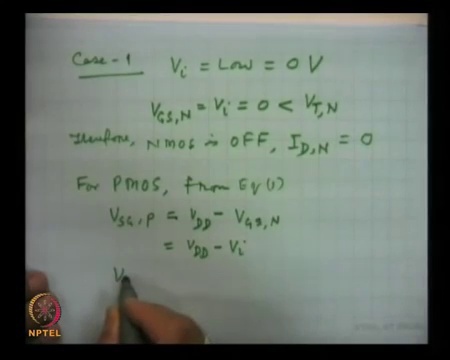 Case-1 Vi = Low = 0 V
VGS,N = Vi = 0 < VT,N
Therefore, NMOS is OFF, ID,N = 0
For PMOS, from Eq(1)
VSG,P = VDD - VGS,N
= VDD - Vi
V
NPTEL